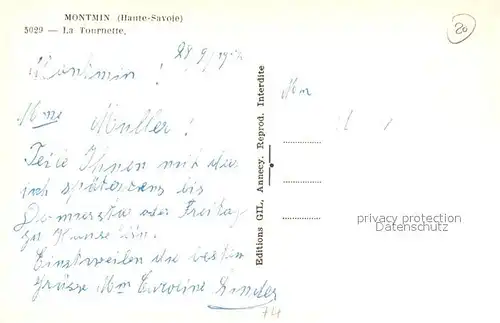 MONTMIN (Haute-Savoie)
5029 — La Tournette.
20
Montmin! 28/9/
Mme
Muller!
Teile Ihnen mit das
ich spätestens bis
Donnerstag oder Freitag
zu Hause bin.
Einstweilen die besten
Grüsse Mm Caroline
74
Editions GIL, Annecy. Reprod. Interdite
Mm
privacy protection
Datenschutz